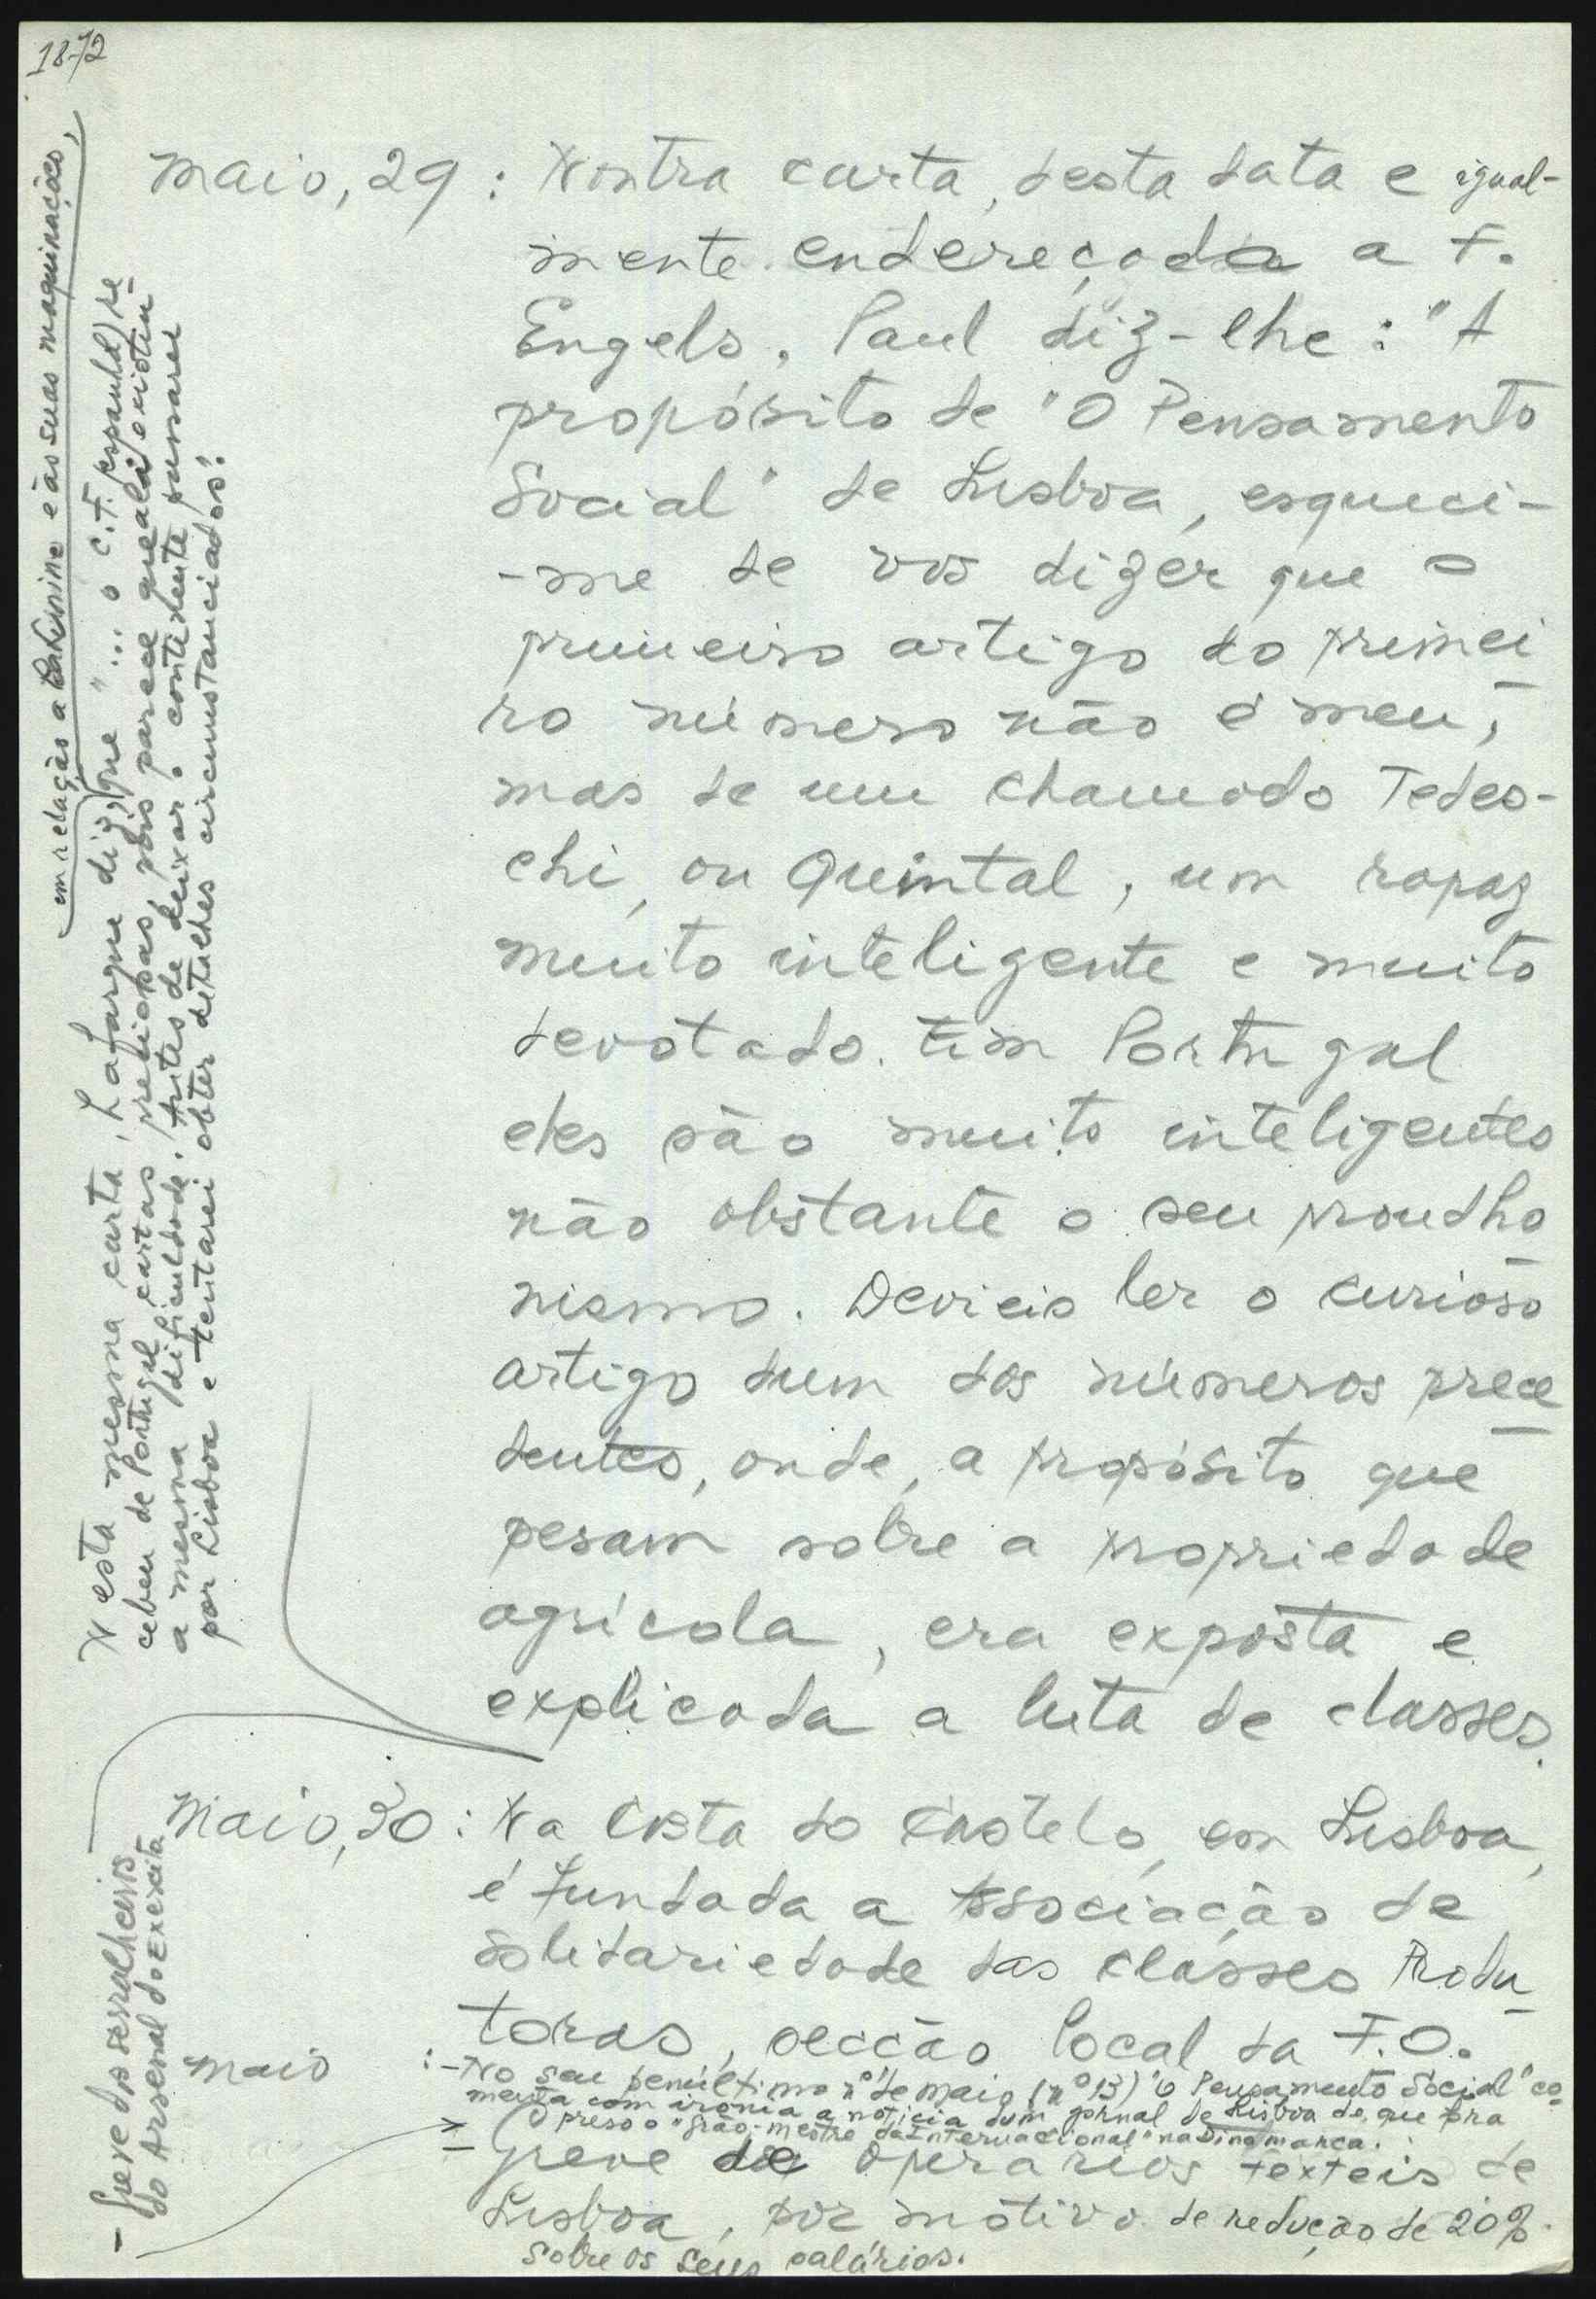 1872
Maio, 29 : Noutra carta, desta data e igual-
mente endereçada a F.
Engels, Paul diz-lhe: "A
propósito de "O Pensamento
Social" de Lisboa, esqueci-
-me de vos dizer que o
primeiro artigo do primei
ro número não é meu,
mas de um chamado Tedes-
chi, ou Quintal, um rapaz
muito inteligente e muito
devotado. Em Portugal
eles são muito inteligentes
não obstante o seu proudho
nismo. Devieis ler o curioso
artigo dum dos números prece
dentes, onde, a propósito que
pesam sobre a propriedade
agrícola, era exposta e
explicada a luta de classes.
Nesta mesma carta, Lafargue diz, que "... o C.F. espanhol) re
cebeu de Portugal cartas preciosas, pois parece que ali existiu
a mesma dificuldade. Antes de deixar o continente passarei
por Lisboa e tentarei obter detalhes circunstanciados".
em relação a Bakunine e às suas maquinações,
Maio, 30 : Na Costa do Castelo, em Lisboa,
é fundada a Associação de
Solidariedade das Classes Produ
toras, secção local da F.O.
Maio : - No seu penúltimo nº de maio (nº 13) "O Pensamento Social" co
menta com ironia a notícia dum jornal de Lisboa de que fora
preso o "grão-mestre da Internacional" na Dinamarca.
- Greve de Operários têxteis de
Lisboa, por motivo de redução de 20%
sobre os seus salários.
- Greve dos serralheiros
do Arsenal do Exército